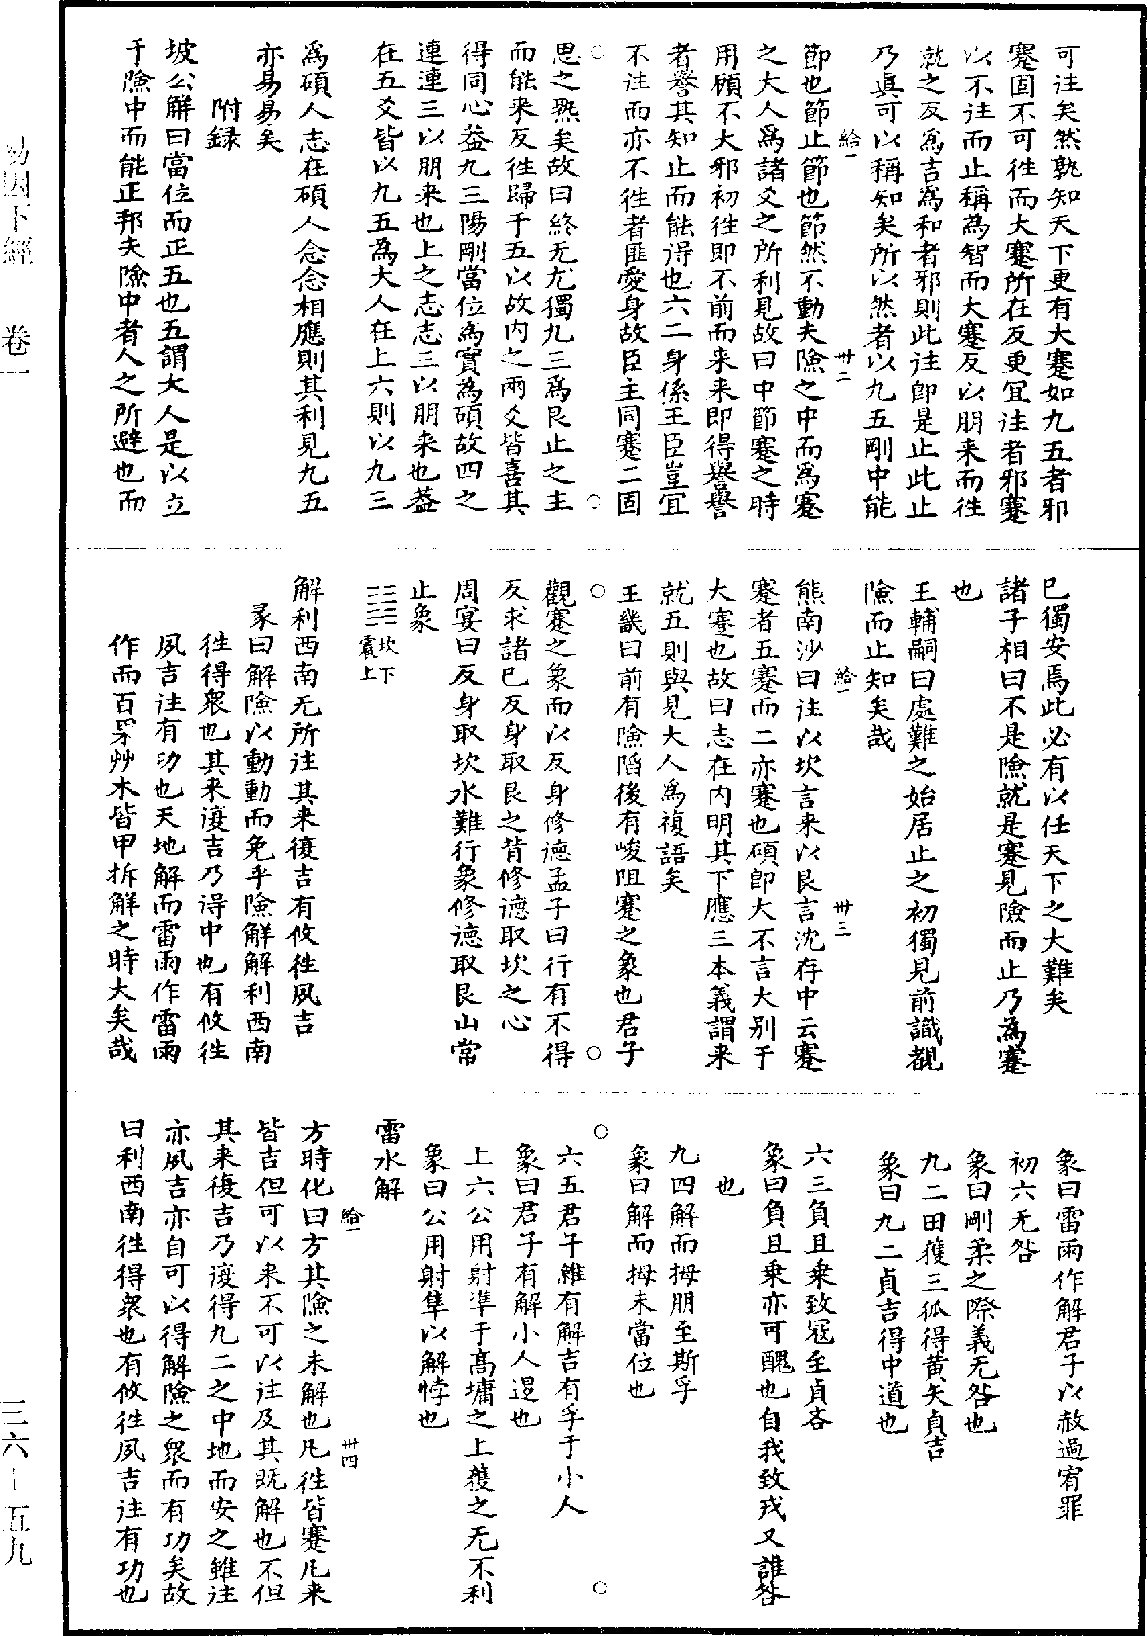 可往矣然孰知天下更有大蹇如九五者邪
蹇固不可往而大蹇所在反更宜往者邪蹇
以不往而止稱為智而大蹇反以朋来而往
就之反爲吉爲和者邪則此往即是止此止
乃真可以稱知矣所以然者以九五剛中能
給一 卅二
節也節止節也節然不動夫險之中而爲蹇
之大人爲諸爻之所利見故曰中節蹇之時
用顧不大邪初往即不前而来来即得譽譽
者譽其知止而能得也六二身係王臣豈宜
不往而亦不往者匪愛身故臣主同蹇二固
思之熟矣故曰終无尤獨九三爲艮止之主
而能来反徃歸于五以故内之兩爻皆喜其
得同心益九三陽剛當位為實為碩故四之
連連三以朋来也上之志志三以朋来也葢
在五爻皆以九五為大人在上六則以九三
爲碩人志在碩人念念相應則其利見九五
亦易易矣
附録
坡公解曰當位而正五也五謂大人是以立
于險中而能正邦夫險中者人之所避也而
已獨安焉此必有以任天下之大難矣
諸子相曰不是險就是蹇見險而止乃為蹇
也
王輔嗣曰處難之始居止之初獨見前識覩
險而止知矣哉
給一 卅三
熊南沙曰往以坎言来以艮言沈存中云蹇
蹇者五蹇而二亦蹇也碩即大不言大别于
大蹇也故曰志在内明其下應三本義謂来
就五則與見大人爲複語矣
王畿曰前有險陷後有峻阻蹇之象也君子
觀蹇之象而以反身修德孟子曰行有不得
反求諸己反身取艮之背修德取坎之心
周宴曰反身取坎水難行象修德取艮山常
止象
坎下
震上
解利西南无所往其来復吉有攸徃夙吉
彖曰解險以動動而免乎險解解利西南
徃得衆也其来復吉乃得中也有攸徃
夙吉往有功也天地解而雷雨作雷雨
作而百果艸木皆甲拆解之時大矣哉
象曰雷雨作解君子以赦過宥罪
初六无咎
象曰剛柔之際義无咎也
九二田獲三狐得黄矢貞吉
象曰九二貞吉得中道也
六三負且乗致寇至貞吝
象曰負且乗亦可醜也自我致戎又誰咎
也
九四解而拇朋至斯孚
象曰解而拇未當位也
六五君子維有解吉有孚于小人
象曰君子有解小人退也
上六公用射隼于高墉之上獲之无不利
象曰公用射隼以解悖也
雷水解
給一 卅四
方時化曰方其險之未解也凡徃皆蹇凡来
皆吉但可以来不可以往及其既解也不但
其来復吉乃復得九二之中地而安之雖往
亦夙吉亦自可以得解險之衆而有功矣故
曰利西南徃得衆也有攸徃夙吉往有功也
易因下經 卷一
三六—五九